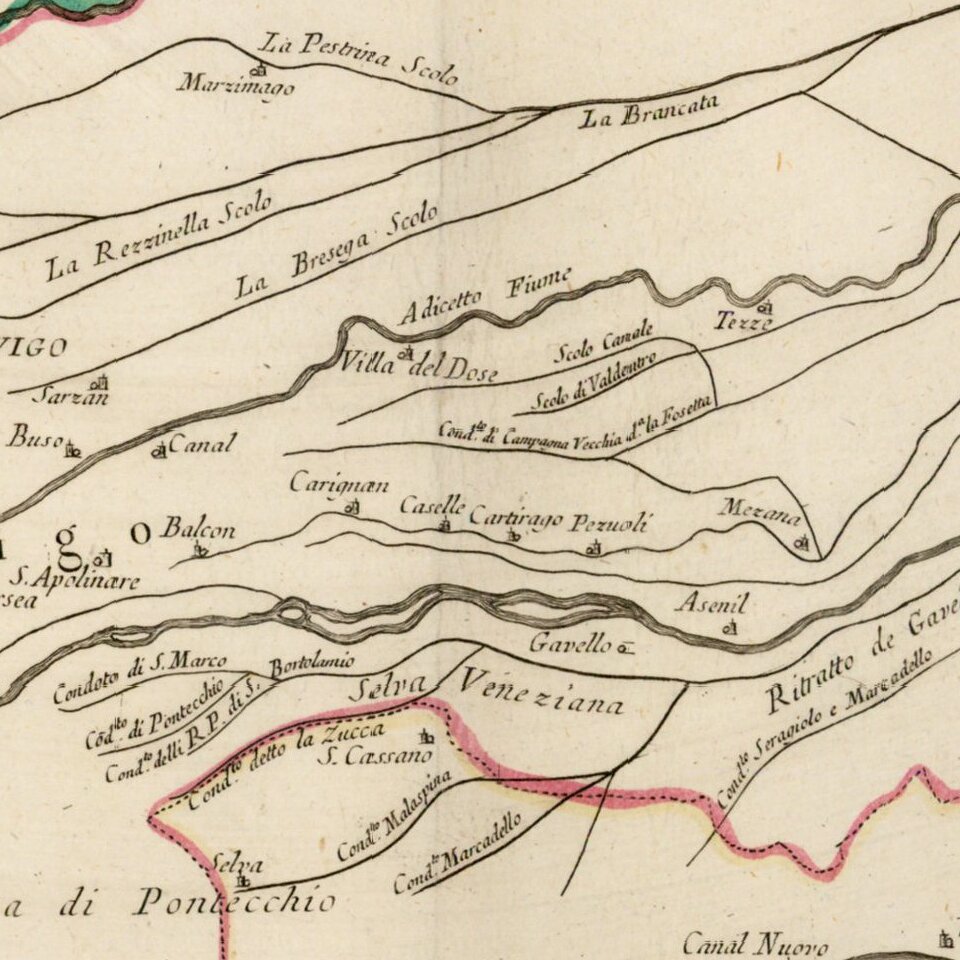 La Pestrina Scolo
Marzimago
La Brancata
La Rezzinella Scolo
La Bresega Scolo
Adicetto Fiume
Tezze
VIGO
Villa del Dose
Scolo Canale
Scolo di Valdentro
Sarzan
Cond.to di Campagna Vecchia d.ta la Fosetta
Buso
Canal
Carignæn
Caselle
Cartirago
Pezuoli
Mezana
g o
Balcon
S. Apolinære
rsea
Asenil
Gavello
Ritratto de Gavel
Condoto di S. Marco
Bortolamio
Selva Veneziana
Cōd.to di Pontecchio
Cond.to delli R.P. di S.
Cond.to detto la Zucca
S. Cæssano
Cond.to Seragiolo e Marcadello
Cond.to Malaspina
Cond.to Marcadello
Selva
a di Pontecchio
Canal Nuovo